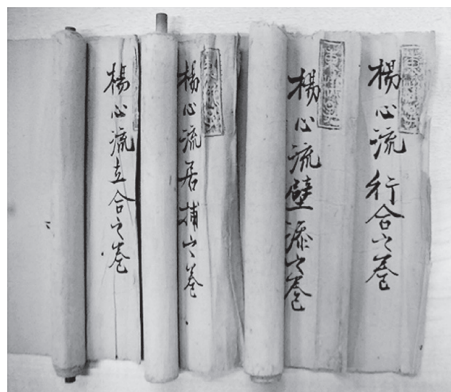 楊心流行合之巻
楊心流壁添之巻
楊心流居捕之巻
楊心流立合之巻